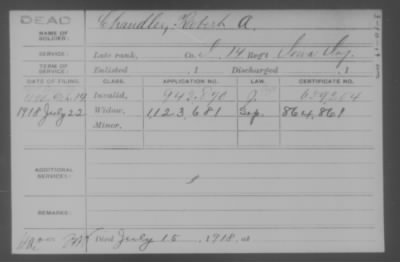 DEAD
NAME OF SOLDIER: Chandler, Robert A.
SERVICE: Late rank, Co. I, 14 Reg't Iowa Inf.
TERM OF SERVICE: Enlisted , 1 Discharged , 1
DATE OF FILING. CLASS. APPLICATION NO. LAW. CERTIFICATE NO.
Invalid,
1918 July 22 Widow, 1123,681 864,861
Minor,
ADDITIONAL SERVICES:
REMARKS:
Died July 15, 1918, at